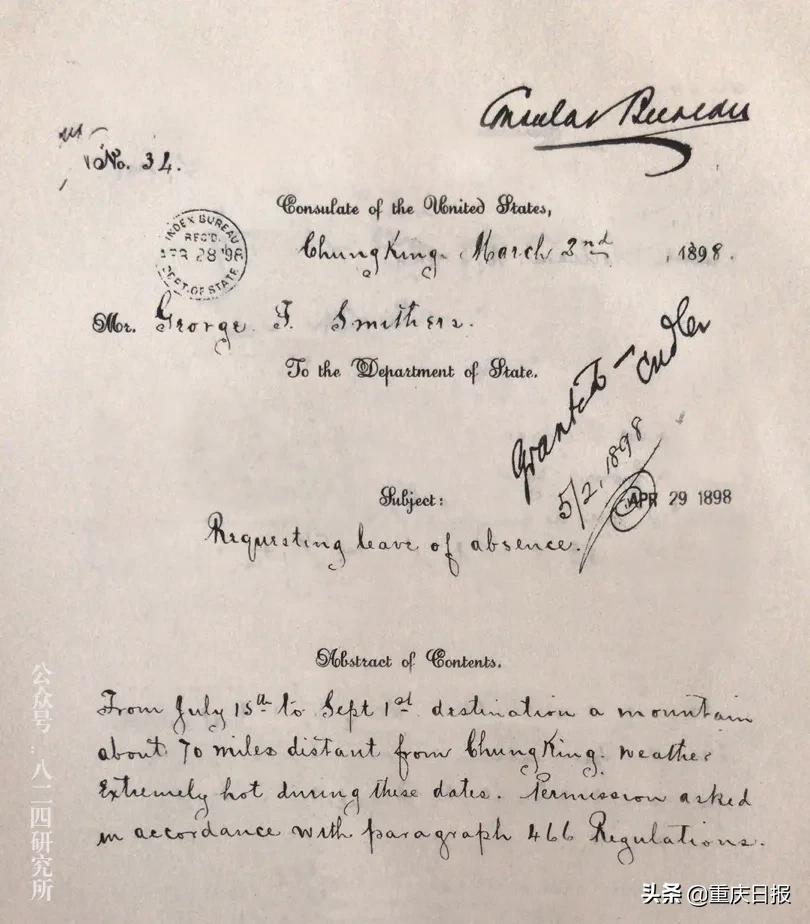 Consular Bureau
No. 34.
Consulate of the United States,
INDEX BUREAU
REC'D.
APR 28 '98
DEPT. OF STATE
ChungKing. March 2nd, 1898.
Mr. George F. Smithers.
To the Department of State.
Granted
5/2, 1898
APR 29 1898
Subject:
Requesting leave of absence.
Abstract of Contents.
From July 15th to Sept 1st destination a mountain
about 70 miles distant from ChungKing. weather
Extremely hot during these dates. Permission asked
in accordance with paragraph 466 Regulations.
公众号:八二四研究所
头条 @重庆日报